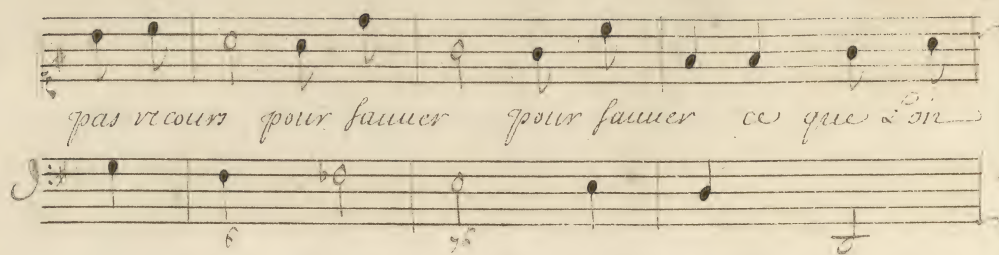 pas recours pour sauuer pour sauuer ce que L'on
6 76